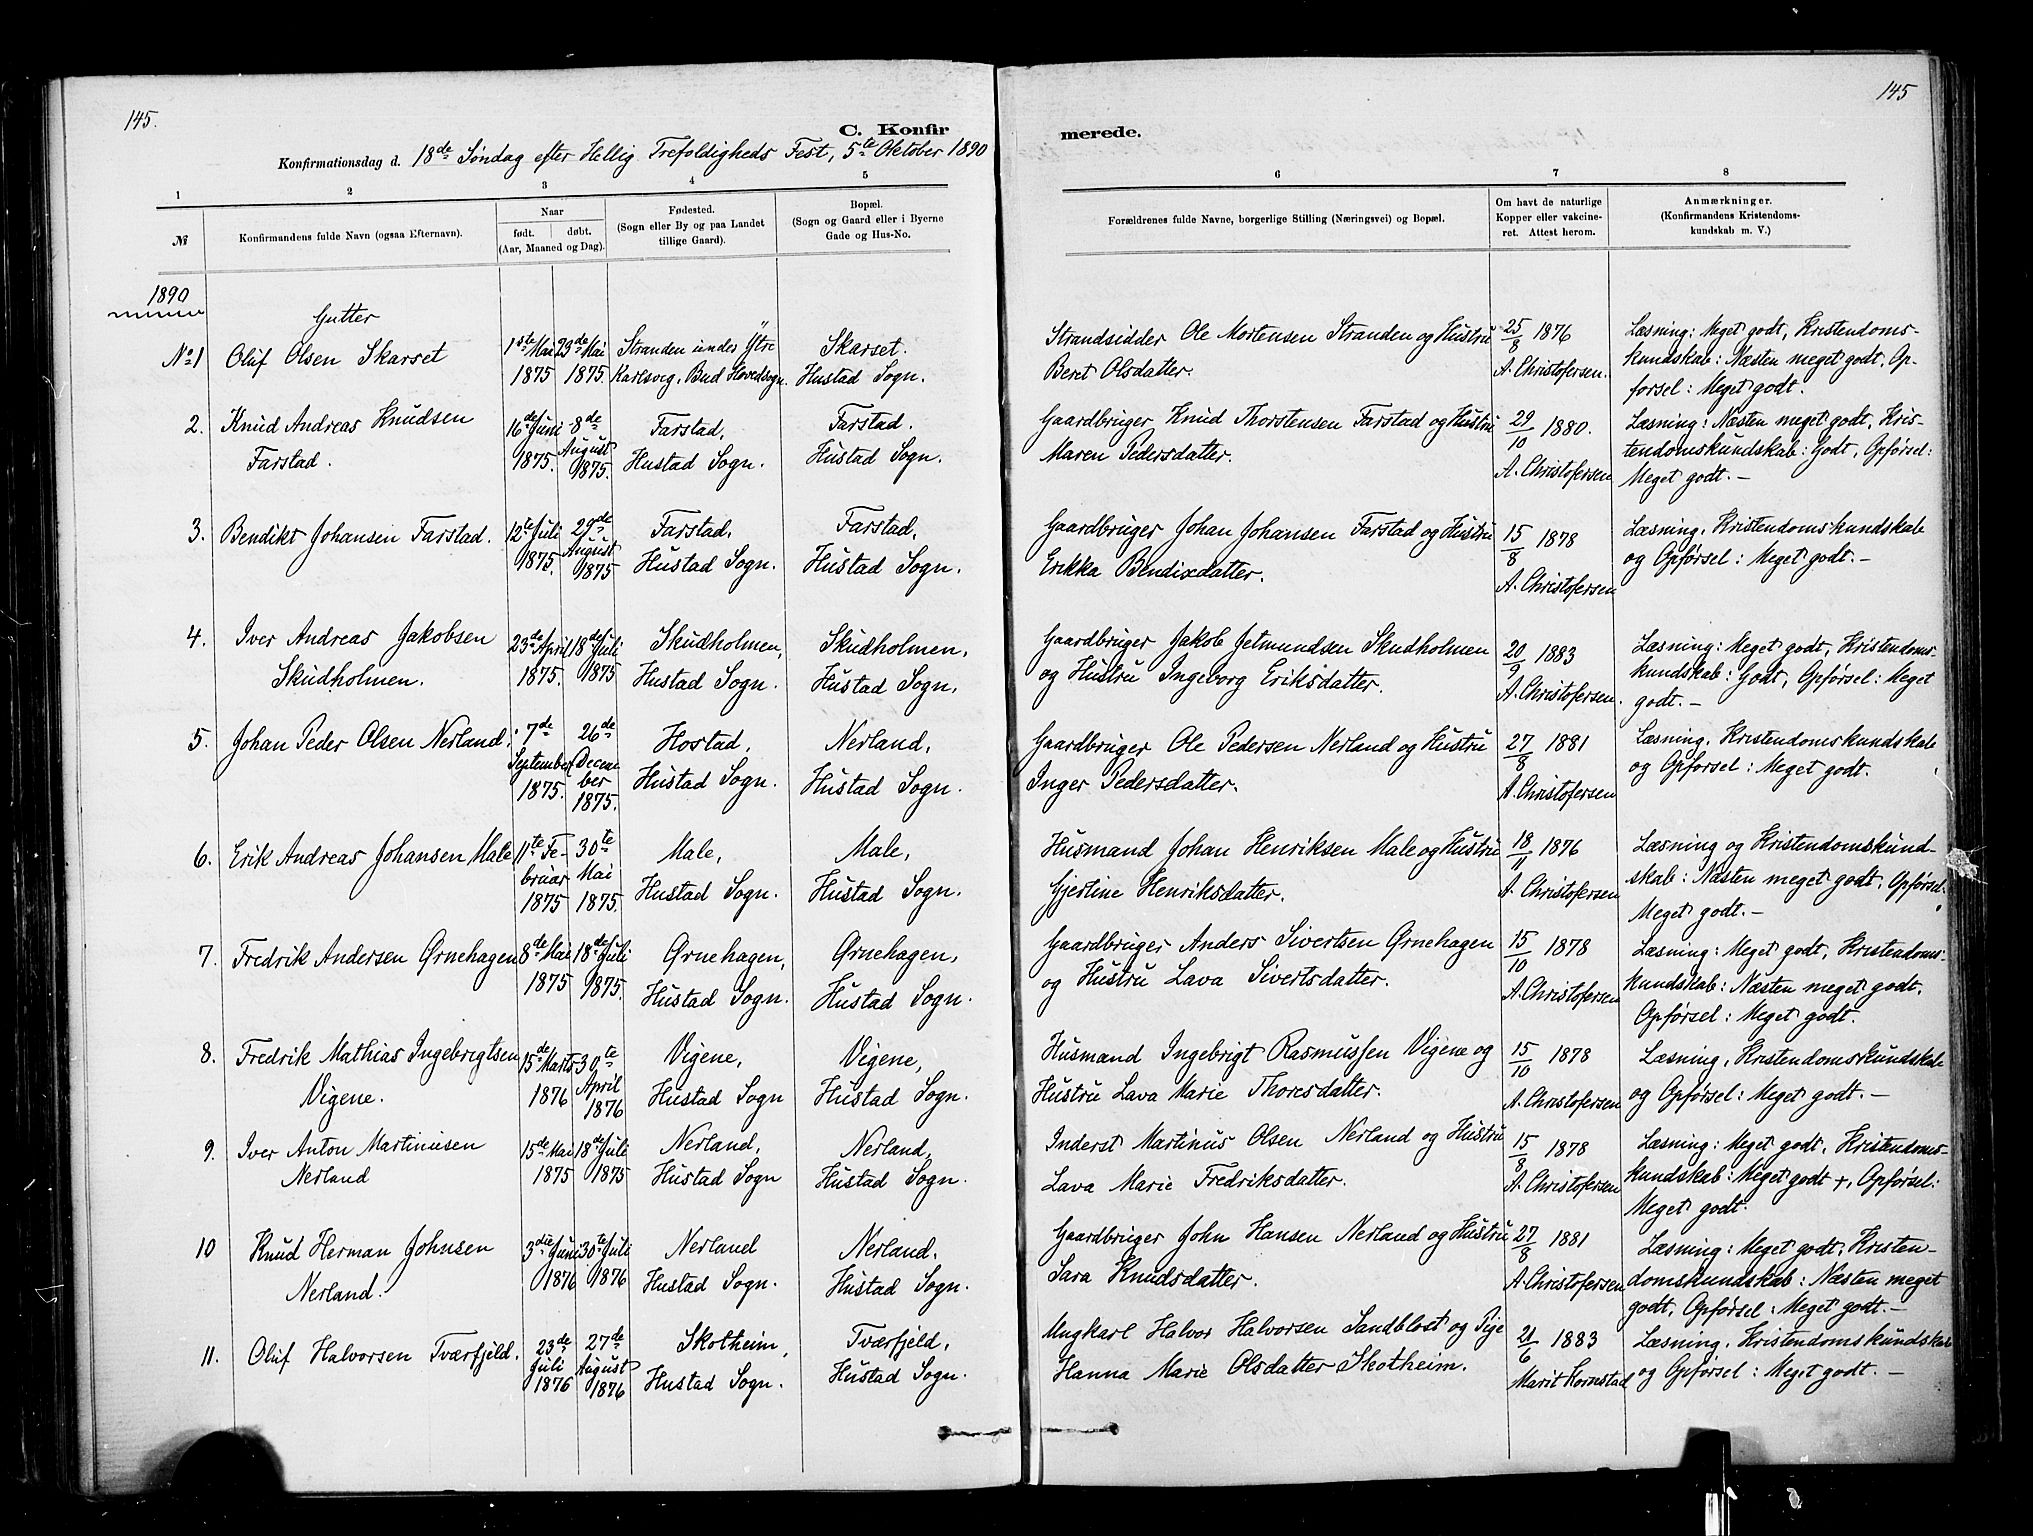 145.
145
C. Konfir
merede.
Konfirmationsdag d. 18de Søndag efter Hellig Trefoldigheds Fest, 5te Oktober 1890
1 2 3 4 5
6 7 8
№ Konfirmandens fulde Navn (ogsaa Efternavn).
Naar
født. døbt.
(Aar, Maaned og Dag).
Fødested.
(Sogn eller By og paa Landet
tillige Gaard).
Bopæl.
(Sogn og Gaard eller i Byerne
Gade og Hus-No.
Forældrenes fulde Navne, borgerlige Stilling (Næringsvei) og Bopæl.
Om havt de naturlige
Kopper eller vakcine-
ret. Attest herom.
Anmærkninger.
(Konfirmandens Kristendoms-
kundskab m. V.)
1890
Gutter
No 1
Oluf Olsen Skarset
1ste Mai
1875
23de Mai
1875.
Stranden under Ytre
Karlsvog, Bud Hovedsogn.
Skarset.
Hustad Sogn.
Strandsidder Ole Mortensen Stranden og Hustru
Beret Olsdatter.
25/8 1876
A. Christofersen.
Læsning: Meget godt, Kristendoms-
kundskab: Næsten meget godt, Op-
førsel: Meget godt.
2.
Knud Andreas Knudsen
Farstad.
16de Juni
1875.
8de
August
1875.
Farstad,
Hustad Sogn.
Farstad.
Hustad Sogn.
Gaardbruger Knud Thorstensen Farstad og Hustru
Maren Pedersdatter.
29/10 1880.
A. Christofersen
Læsning: Næsten meget godt, Kris-
tendomskundskab: Godt, Opførsel:
Meget godt. —
3.
Bendikt Johansen Farstad.
12te Juli
1875.
29de
August
1875
Farstad,
Hustad Sogn.
Farstad,
Hustad Sogn.
Gaardbruger Johan Johansen Farstad og Hustru
Erikka Bendixdatter.
15/8 1878
A. Christofersen
Læsning, Kristendomskundskab
og Opførsel: Meget godt. —
4.
Iver Andreas Jakobsen
Skudholmen.
23de April
1875.
18de Juli
1875
Skudholmen,
Hustad Sogn.
Skudholmen,
Hustad Sogn.
Gaardbruger Jakob Jetmundsen Skudholmen
og Hustru Ingeborg Eriksdatter.
20/9 1883
A. Christofersen.
Læsning: Meget godt, Kristendoms-
kundskab: Godt, Opførsel: Meget
godt. —
5.
Johan Peder Olsen Nerland,
7de
September
1875.
26de
Decem
ber
1875.
Hostad,
Hustad Sogn.
Nerland,
Hustad Sogn.
Gaardbruger Ole Pedersen Nerland og Hustru
Inger Pedersdatter.
27/8 1881
A. Christofersen
Læsning, Kristendomskundskab
og Opførsel: Meget godt.
6.
Erik Andreas Johansen Male
11te Fe-
bruar
1875
30te
Mai
1875.
Male,
Hustad Sogn.
Male,
Hustad Sogn.
Husmand Johan Henriksen Male og Hustru
Gjertine Henriksdatter.
18/11 1876
A. Christofersen
Læsning og Kristendomskund-
skab: Næsten meget godt, Opførsel:
Meget godt. —
7.
Fredrik Andersen Ørnehagen
8de Mai
1875
18de Juli
1875.
Ørnehagen,
Hustad Sogn.
Ørnehagen,
Hustad Sogn.
Gaardbruger Anders Sivertsen Ørnehagen
og Hustru Lava Sivertsdatter.
15/10 1878
A. Christofersen
Læsning: Meget godt, Kristendoms-
kundskab: Næsten meget godt,
Opførsel: Meget godt.
8.
Fredrik Mathias Ingebrigtsen
Vigene.
15de Marts
1876
30te
April
1876
Vigene,
Hustad Sogn
Vigene,
Hustad Sogn.
Husmand Ingebrigt Rasmussen Vigene og
Hustru Lava Marie Thoresdatter.
15/10 1878
A. Christofersen
Læsning, Kristendomskundskab
og Opførsel: Meget godt. —
9.
Iver Anton Martinusen
Nerland
15de Mai
1875
18de Juli
1875
Nerland,
Hustad Sogn
Nerland,
Hustad Sogn.
Inderst Martinus Olsen Nerland og Hustru
Lava Marie Fredriksdatter.
15/8 1878
A. Christofersen
Læsning: Meget godt, Kristendoms-
kundskab: Meget godt +, Opførsel:
Meget godt.
10
Knud Herman Johnsen
Nerland.
3die Juni
1876
30te Juli
1876
Nerland
Hustad Sogn.
Nerland.
Hustad Sogn.
Gaardbruger John Hansen Nerland og Hustru
Sara Knudsdatter.
27/8 1881
A. Christofersen
Læsning: Meget godt, Kristen-
domskundskab: Næsten meget
godt, Opførsel: Meget godt. —
11.
Oluf Halvorsen Tværfjeld.
23de
Juli
1876
27de
August
1876
Skotheim,
Hustad Sogn.
Tværfjeld,
Hustad Sogn.
Ungkarl Halvor Halvorsen Sandblost og Pige
Hanna Marie Olsdatter Skotheim.
21/6 1883
Marit Hornstad
Læsning, Kristendomskundskab
og Opførsel: Meget godt. —